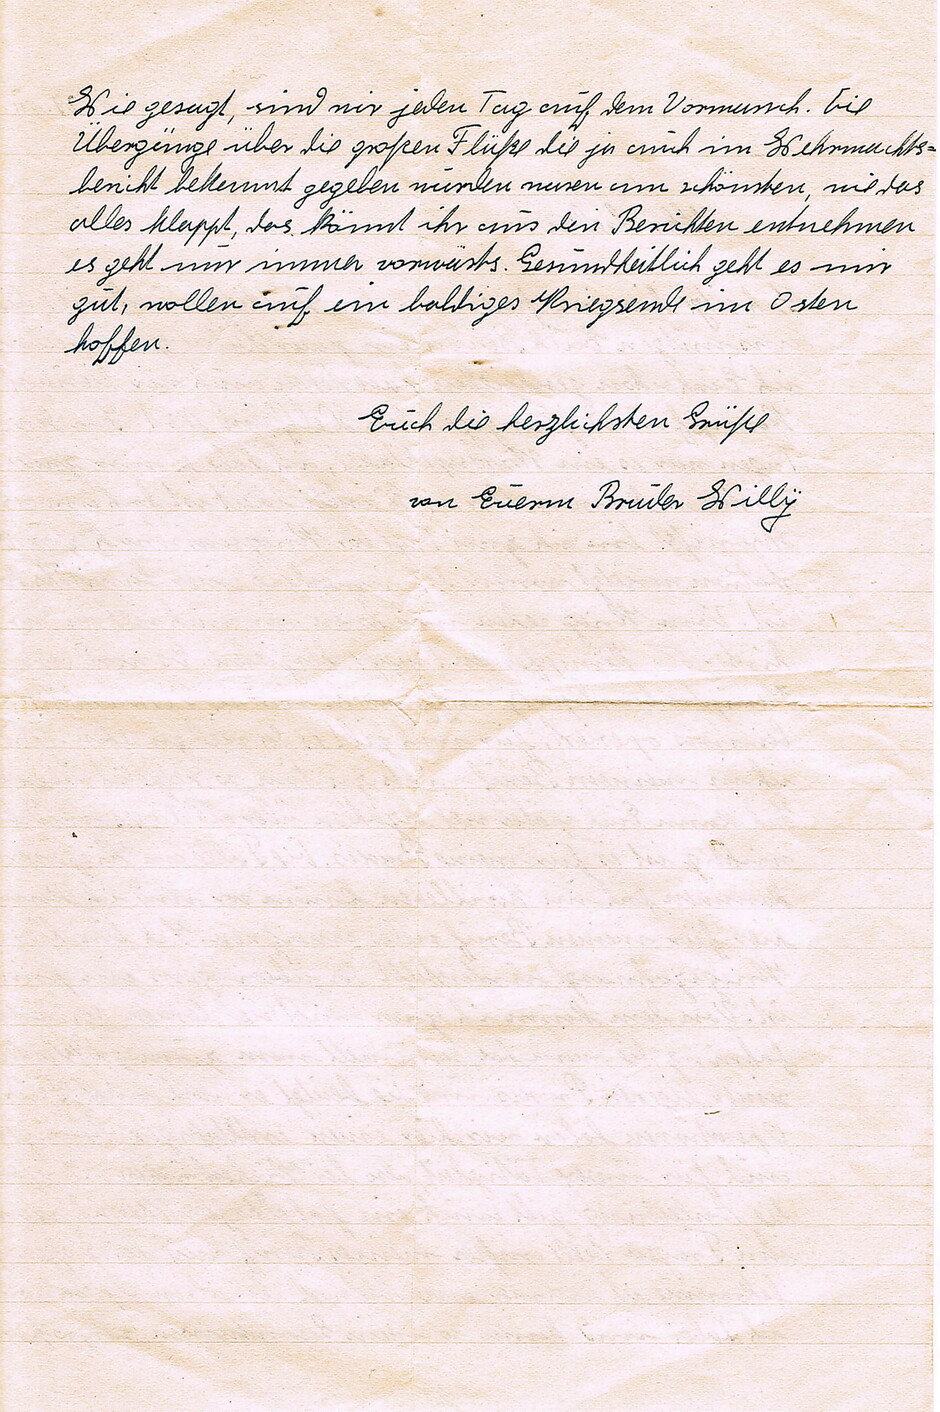 Wie gesagt, sind wir jeden Tag auf dem Vormarsch. Die
Übergänge über die großen Flüße die ja auch im Wehrmachts=
bericht bekannt gegeben wurden waren am schönsten, wie das
alles klappt, das könnt ihr aus den Berichten entnehmen
es geht nur immer vorwärts. Gesundheitlich geht es mir
gut, wollen auf ein baldiges Kriegsende im Osten
hoffen.
Euch die herzlichsten Grüße
von Euerm Bruder Willÿ